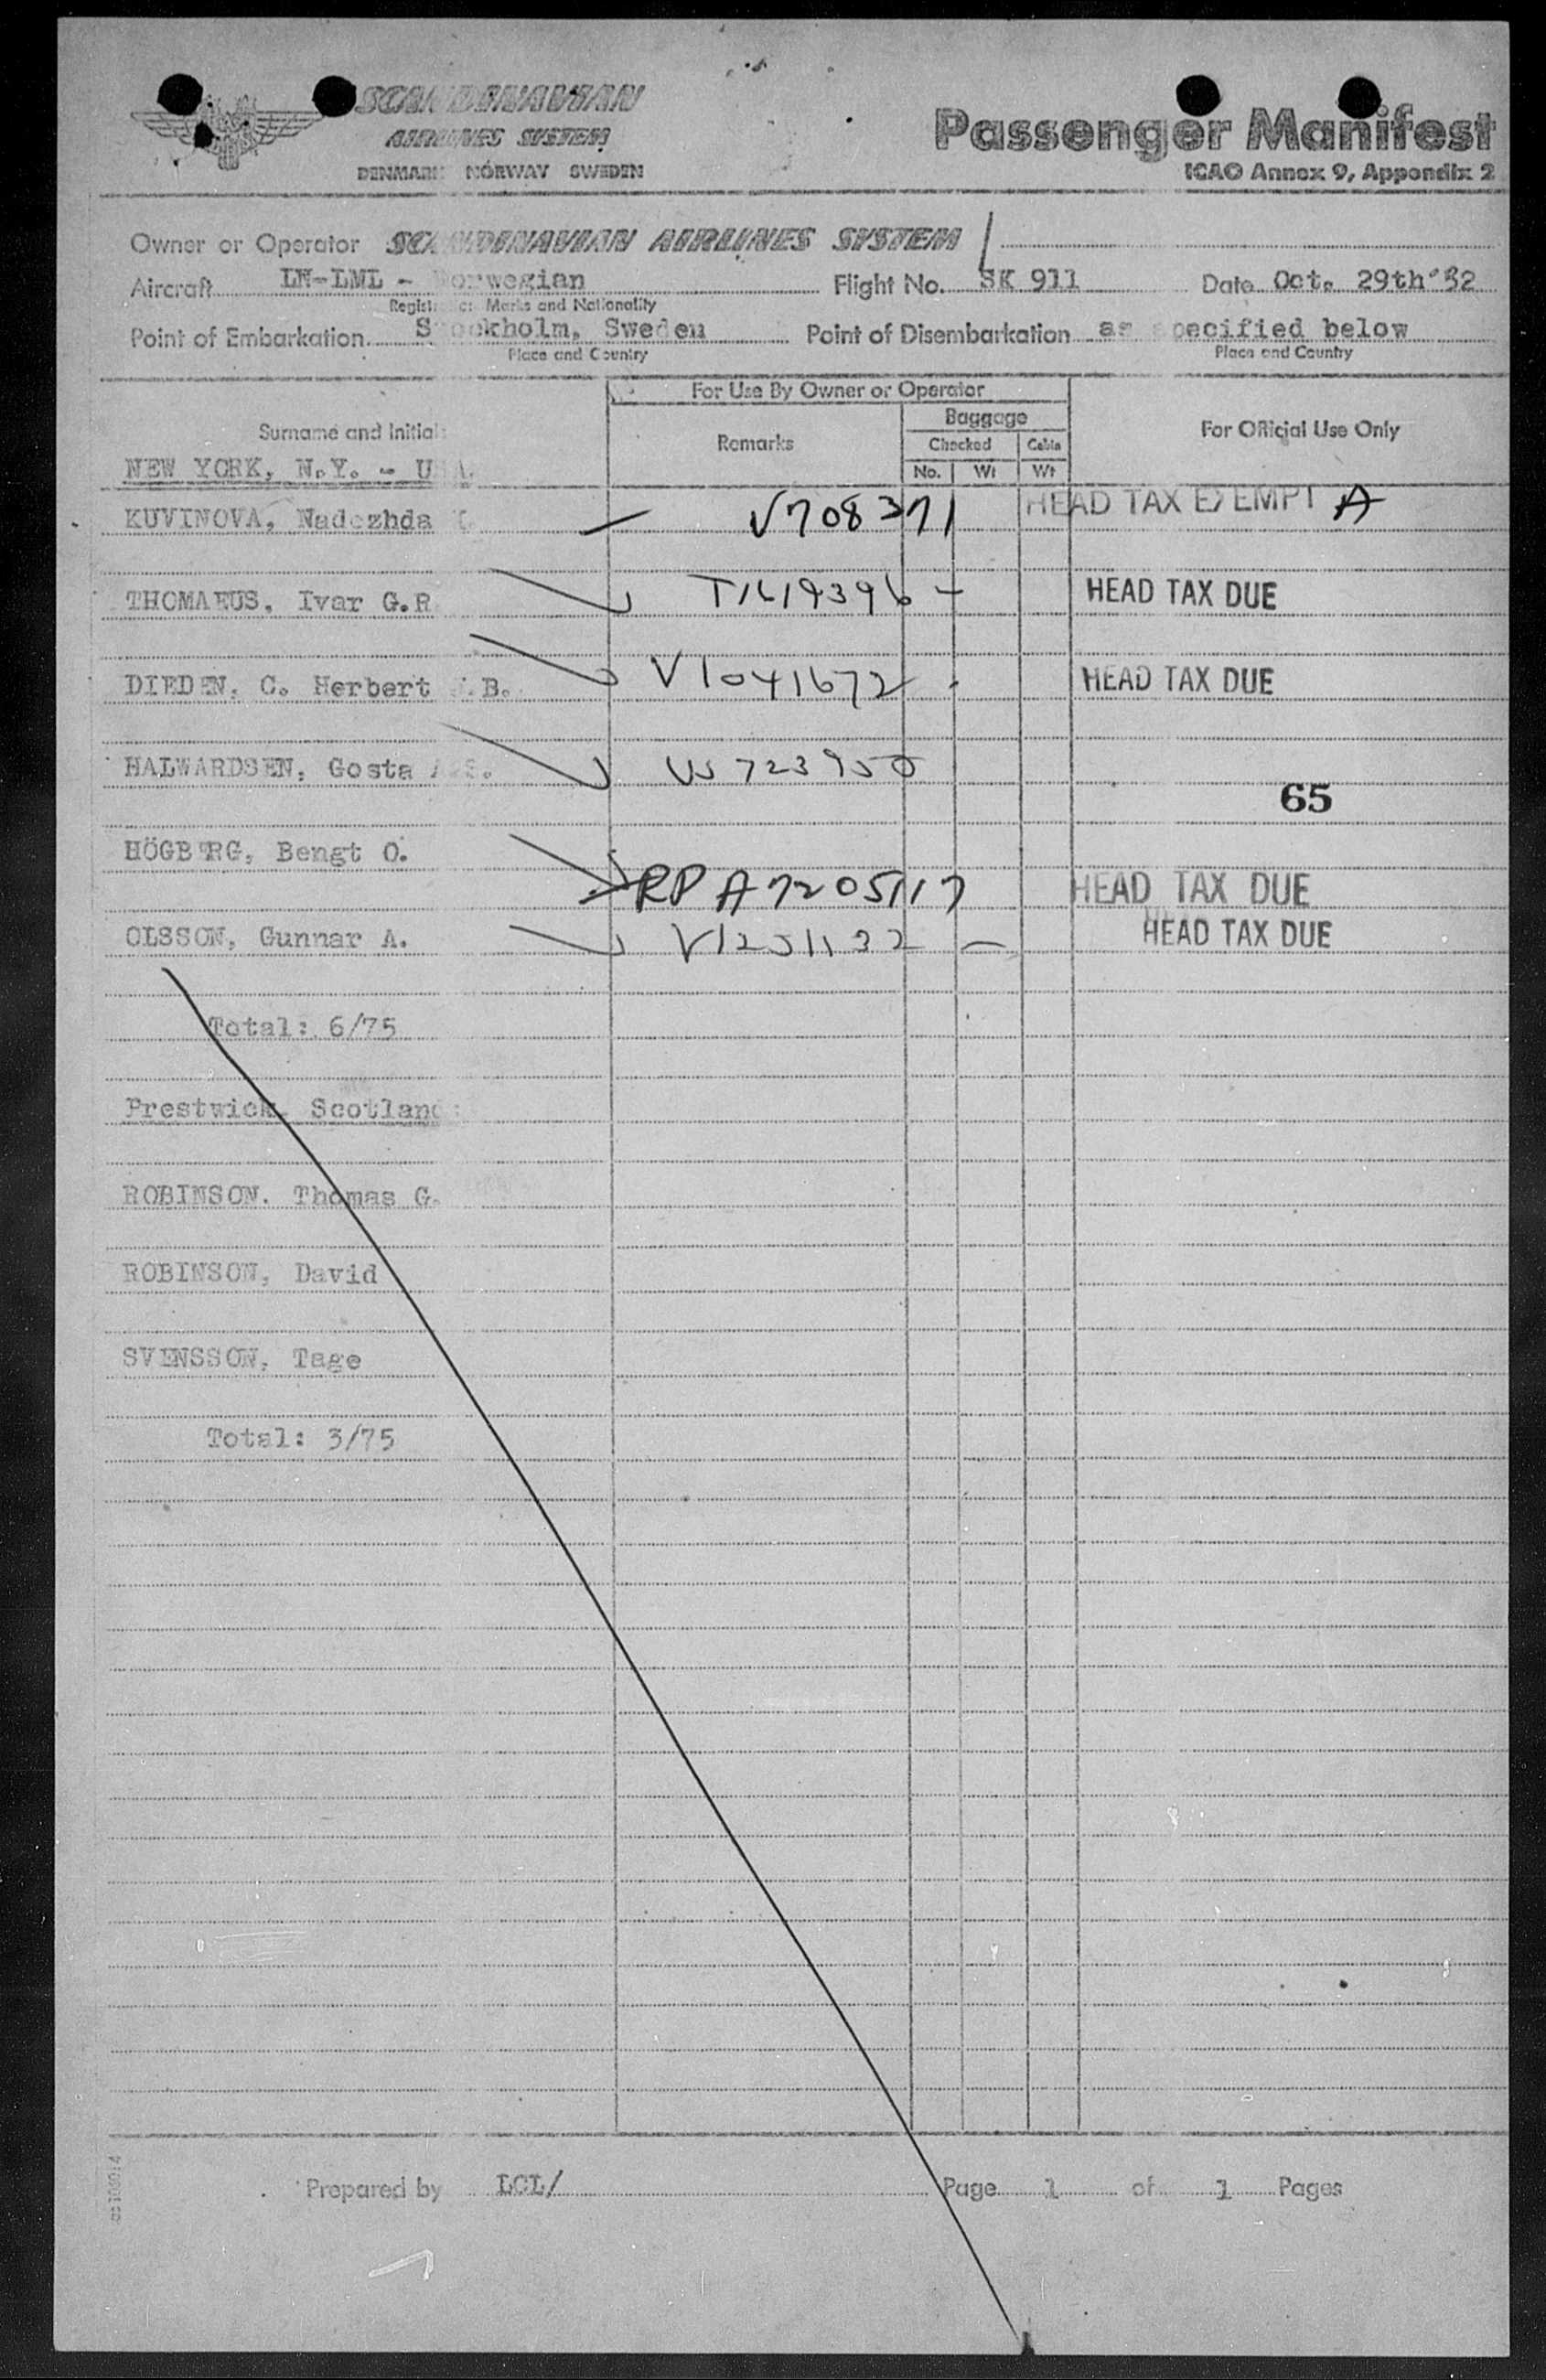 SCANDINAVIAN
AIRLINES SYSTEM
DENMARK NORWAY SWEDEN
Passenger Manifest
ICAO Annex 9, Appendix 2
Owner or Operator SCANDINAVIAN AIRLINES SYSTEM
Aircraft LN-LML - Norwegian Flight No. SK 911 Date Oct. 29th'52
Registration Marks and Nationality
Point of Embarkation Stockholm, Sweden Point of Disembarkation as specified below
Place and Country Place and Country
For Use By Owner or Operator
Surname and Initials Remarks Baggage For Official Use Only
Checked Cabin
No. Wt Wt
NEW YORK, N.Y. - USA.
KUVINOVA, Nadezhda V708371 HEAD TAX EXEMPT A
THOMAEUS, Ivar G.R. T1619396 HEAD TAX DUE
DIEDEN, C. Herbert B. V1041672 HEAD TAX DUE
HALWARDSEN, Gosta US723950
65
HÖGBERG, Bengt O.
RP A7205117 HEAD TAX DUE
OLSSON, Gunnar A. V1251132 HEAD TAX DUE
Total: 6/75
Prestwick, Scotland:
ROBINSON. Thomas G.
ROBINSON, David
SVENSSON, Tage
Total: 3/75
Prepared by LCL/ Page 1 of 1 Pages